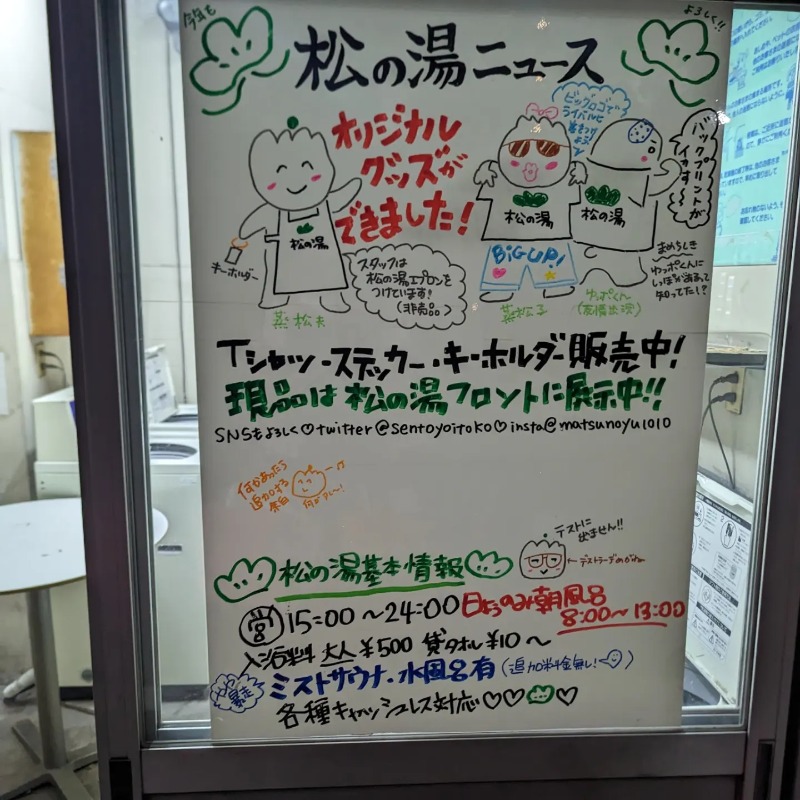 今年も
よろしく!!
松の湯ニュース
オリジナル
グッズが
できました!
ビッグロゴで
ライバルに
差をつけ
よう♪
バックプリントが
イカす
松の湯
松の湯
松の湯
BiG UP!
キーホルダー
スタッフは
松の湯エプロンを
つけています!
(非売品)
蒸松夫
蒸松子
ゆっポくん
(友情出演)
まめちしき
ゆっポくんに
しっぽがあるって
知ってた!?
Tシャツ・ステッカー・キーホルダー販売中!
現品は松の湯フロントに展示中!!
SNSもよろしく♡twitter@sentoyoitoko♡insta@matsunoyu1010
何かあったら
追加する
余白
テストに
出ません!!
松の湯基本情報
営 15:00〜24:00 日よう のみ朝風呂
8:00〜13:00
入浴料 大人 ¥500 貸タオル ¥10〜
暴走
ミストサウナ・水風呂有(追加料金無し!)
各種キャッシュレス対応♡♡♡